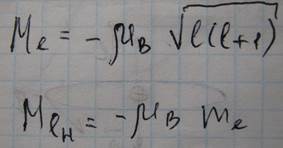 Mℓ = - μB √ℓ(ℓ+1)
MℓH = - μB mℓ